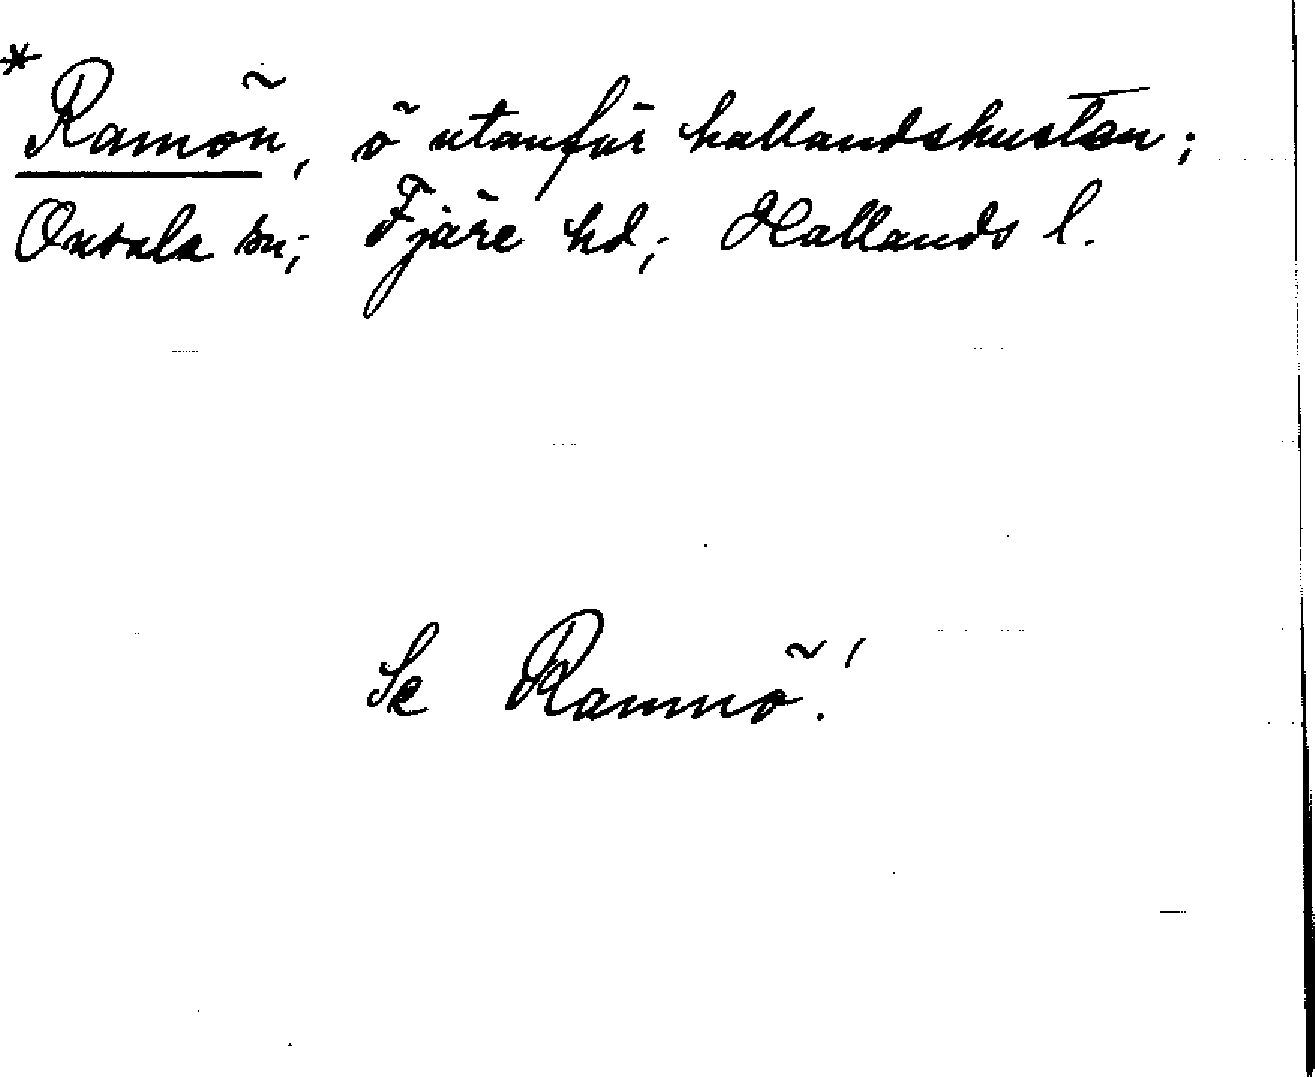 * Ramön, ö utanför hallandskusten;
Onsala sn; Fjäre hd; Hallands l.
Se Rammö!